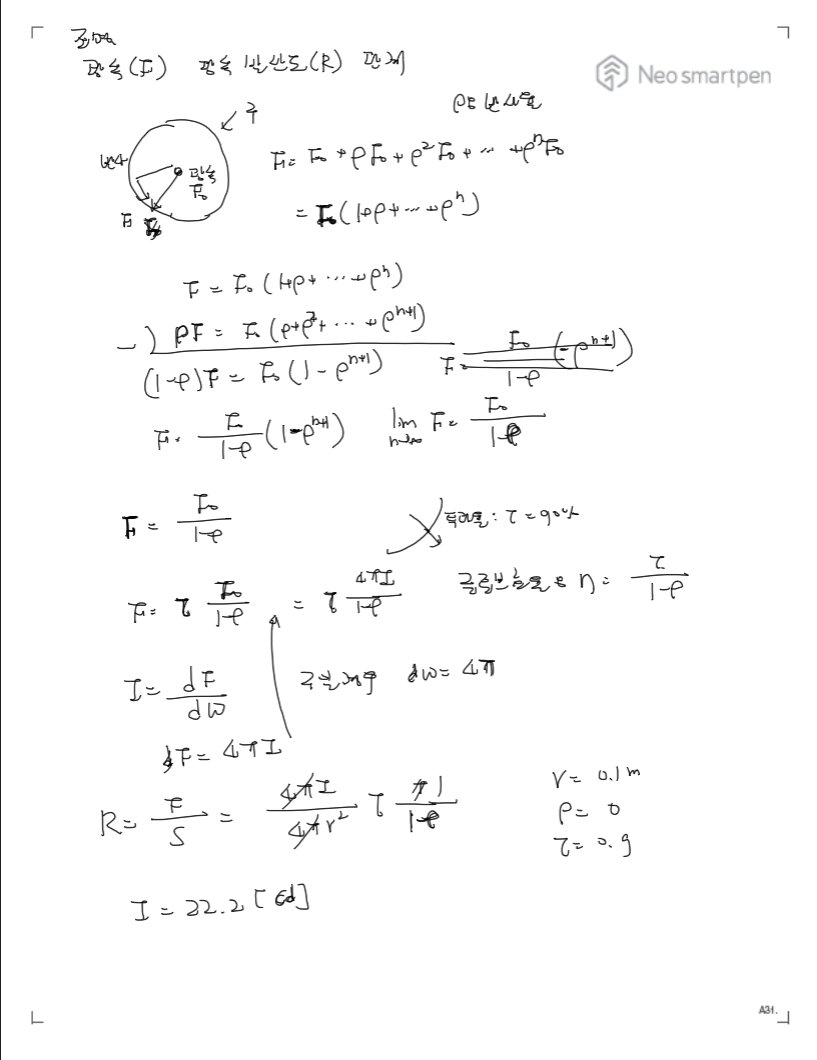 조명
광속(F) 광속 발산도(R) 관계
Neo smartpen
ρ는 반사율
구
반사
광속
F₀
F
F = F₀ + ρF₀ + ρ²F₀ + ... + ρⁿF₀
= F₀(1+ρ+...+ρⁿ)
F = F₀(1+ρ+...+ρⁿ)
-) ρF = F₀(ρ+ρ²+...+ρⁿ⁺¹)
(1-ρ)F = F₀(1-ρⁿ⁺¹)
F = F₀/(1-ρ) (1-ρⁿ⁺¹) lim n→∞ F = F₀/(1-ρ)
F = F₀/(1-ρ)
투과율 : τ = 90%
F = τ F₀/(1-ρ) = τ 4πI/(1-ρ) 글로브효율은 η = τ/(1-ρ)
I = dF/dω
구일 경우 dω = 4π
F = 4πI
R = F/S = 4πI/4πr² τ 1/(1-ρ)
r = 0.1m
ρ = 0
τ = 0.9
I = 22.2 [cd]
A31.